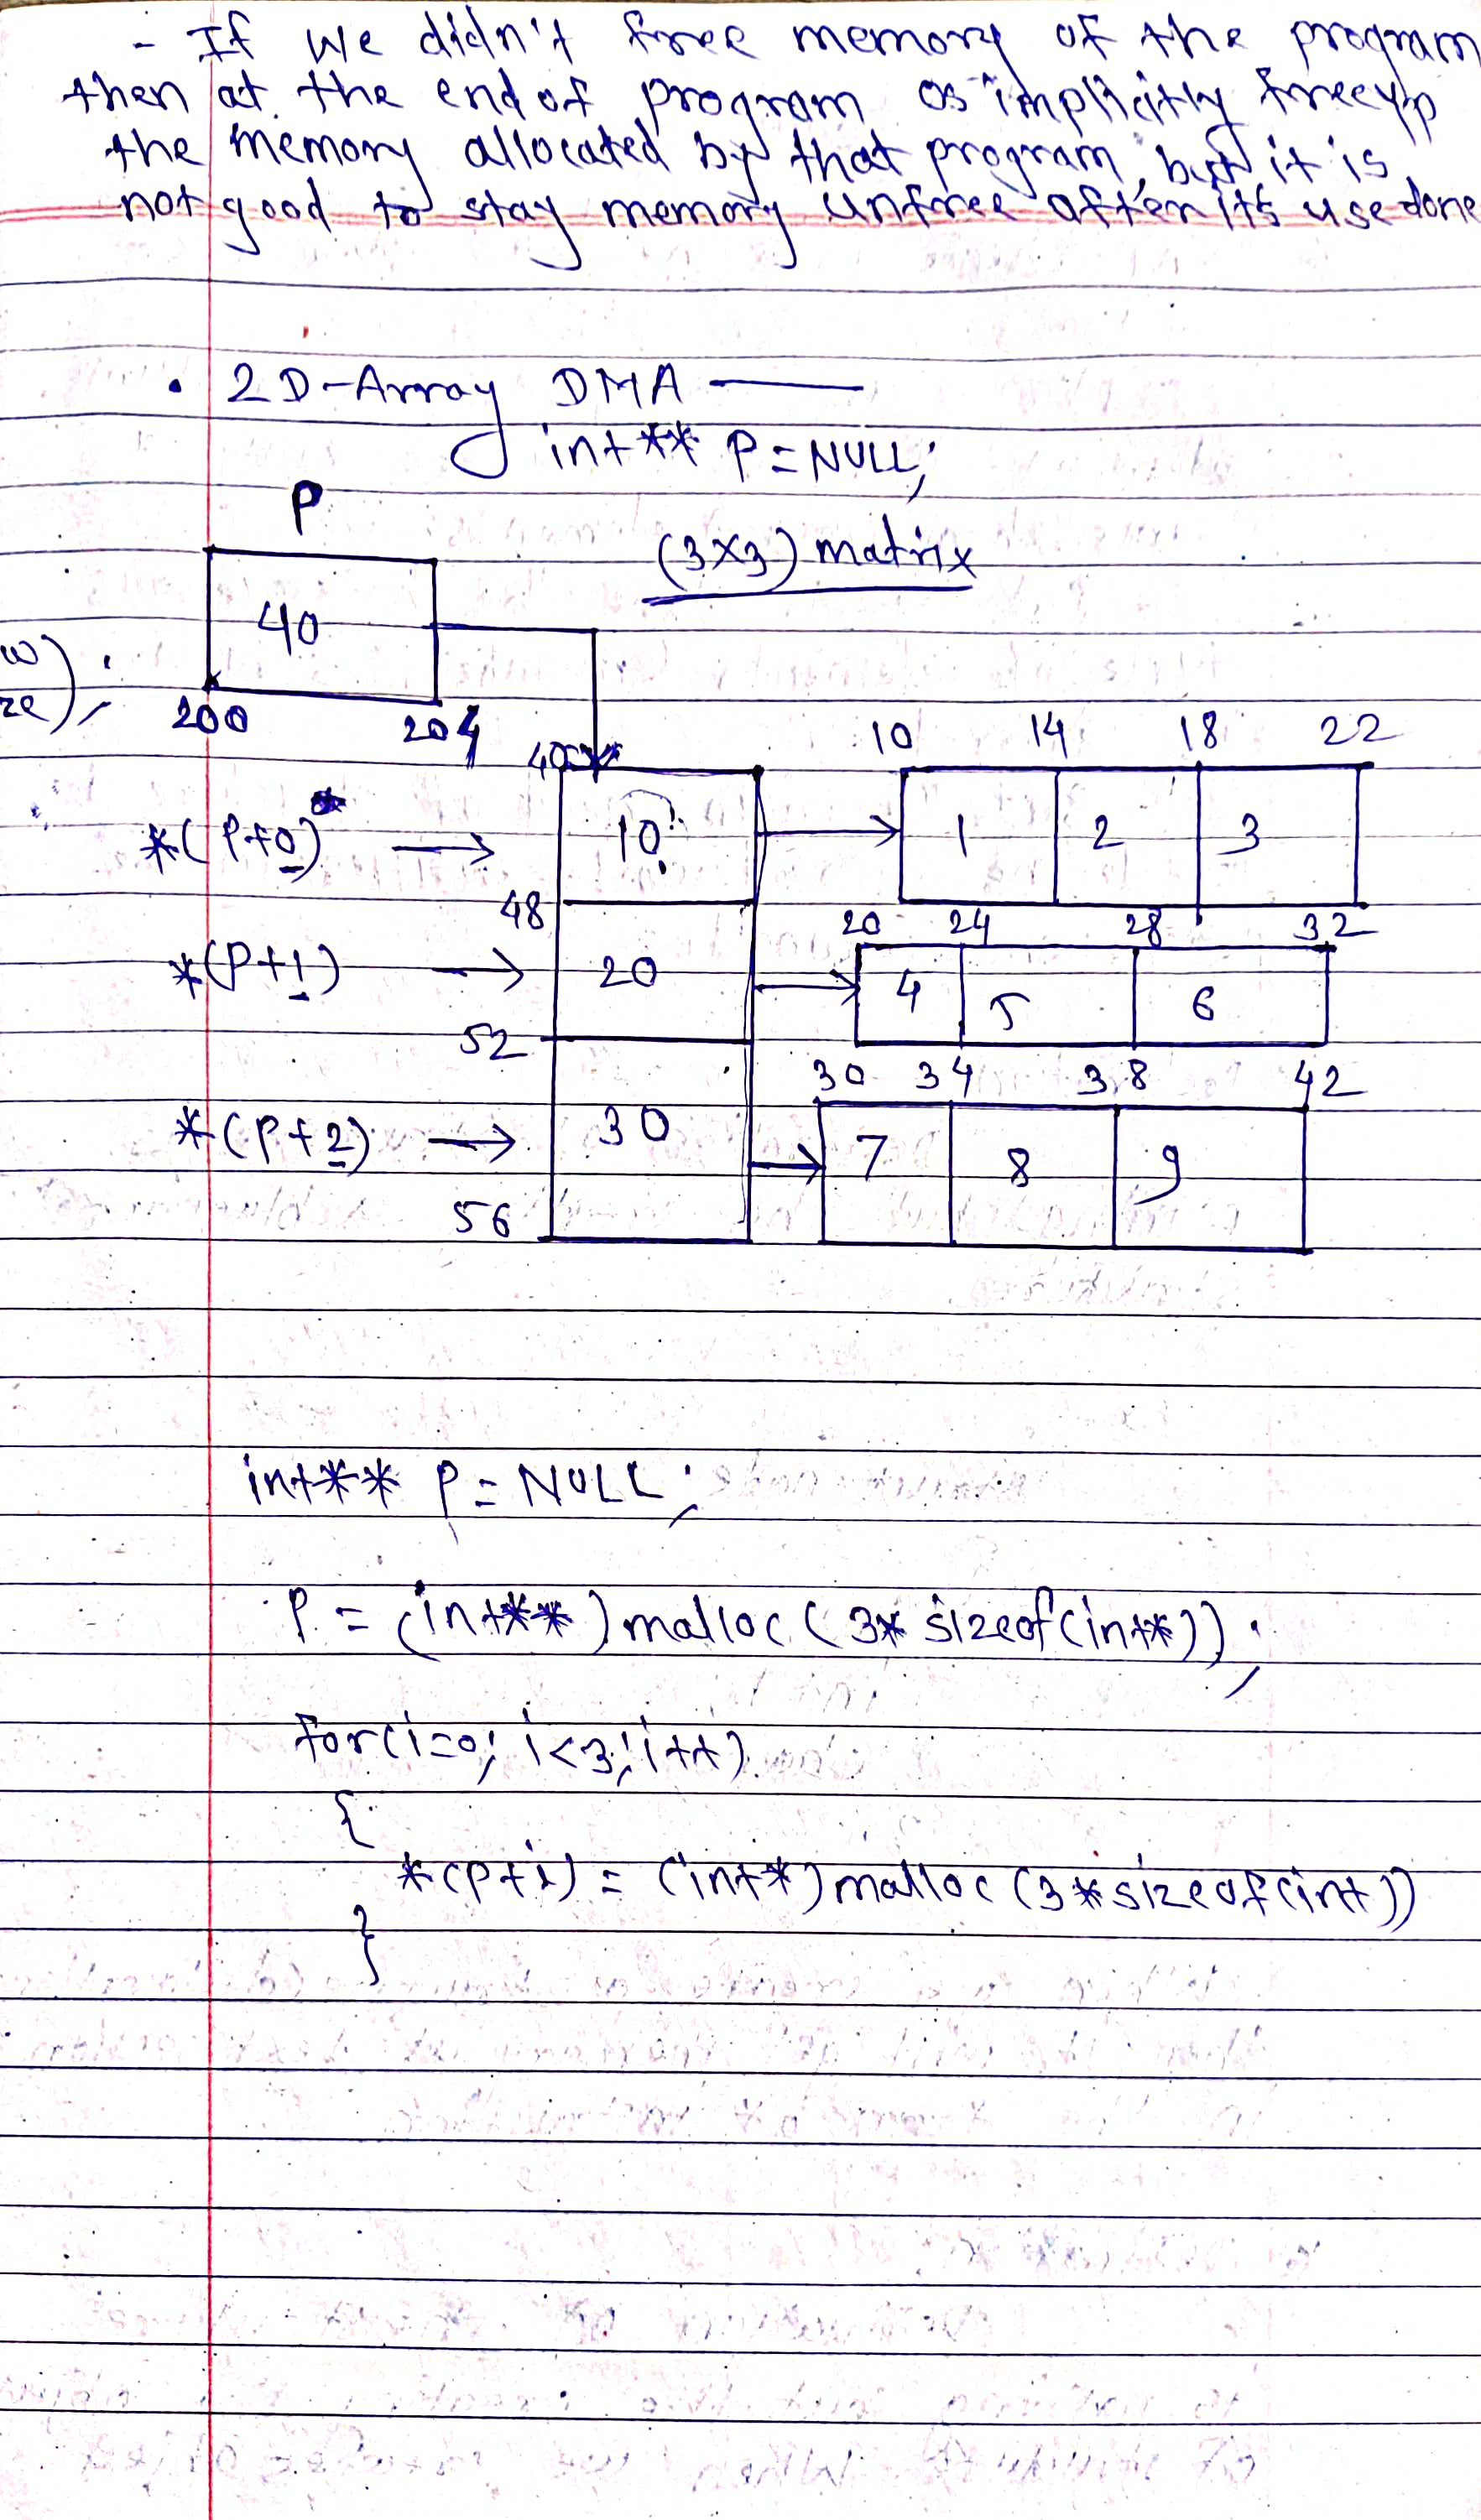 - If we didn't free memory of the program
then at the end of program os implicitly freeup
the memory allocated by that program, but it is
not good to stay memory unfree after its use done
• 2D-Array DMA —
int** P=NULL;
P
(3x3) matrix
40
w)
ze);
200 204
40
10 14 18 22
*(P+0) → 10 1 2 3
48
20 24 28 32
*(P+1) → 20 4 5 6
52
30 34 38 42
*(P+2) → 30 7 8 9
56
int** P=NULL;
P = (int**)malloc(3*sizeof(int*));
for(i=0; i<3; i++)
{
*(P+i) = (int*)malloc(3*sizeof(int))
}